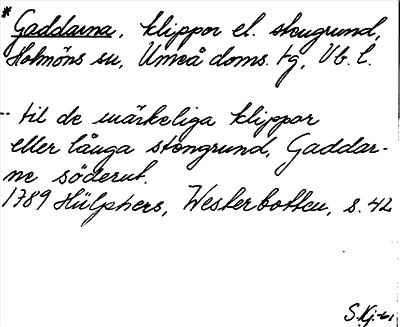 * Gaddarna, klippor el. stengrund,
Holmöns sn, Umeå doms. tg, Vb. l.
-- til de märkeliga klippor
eller långa stengrund, Gaddar-
ne söderut.
1789 Hülphers, Westerbotten, s. 42
S. Kj-m